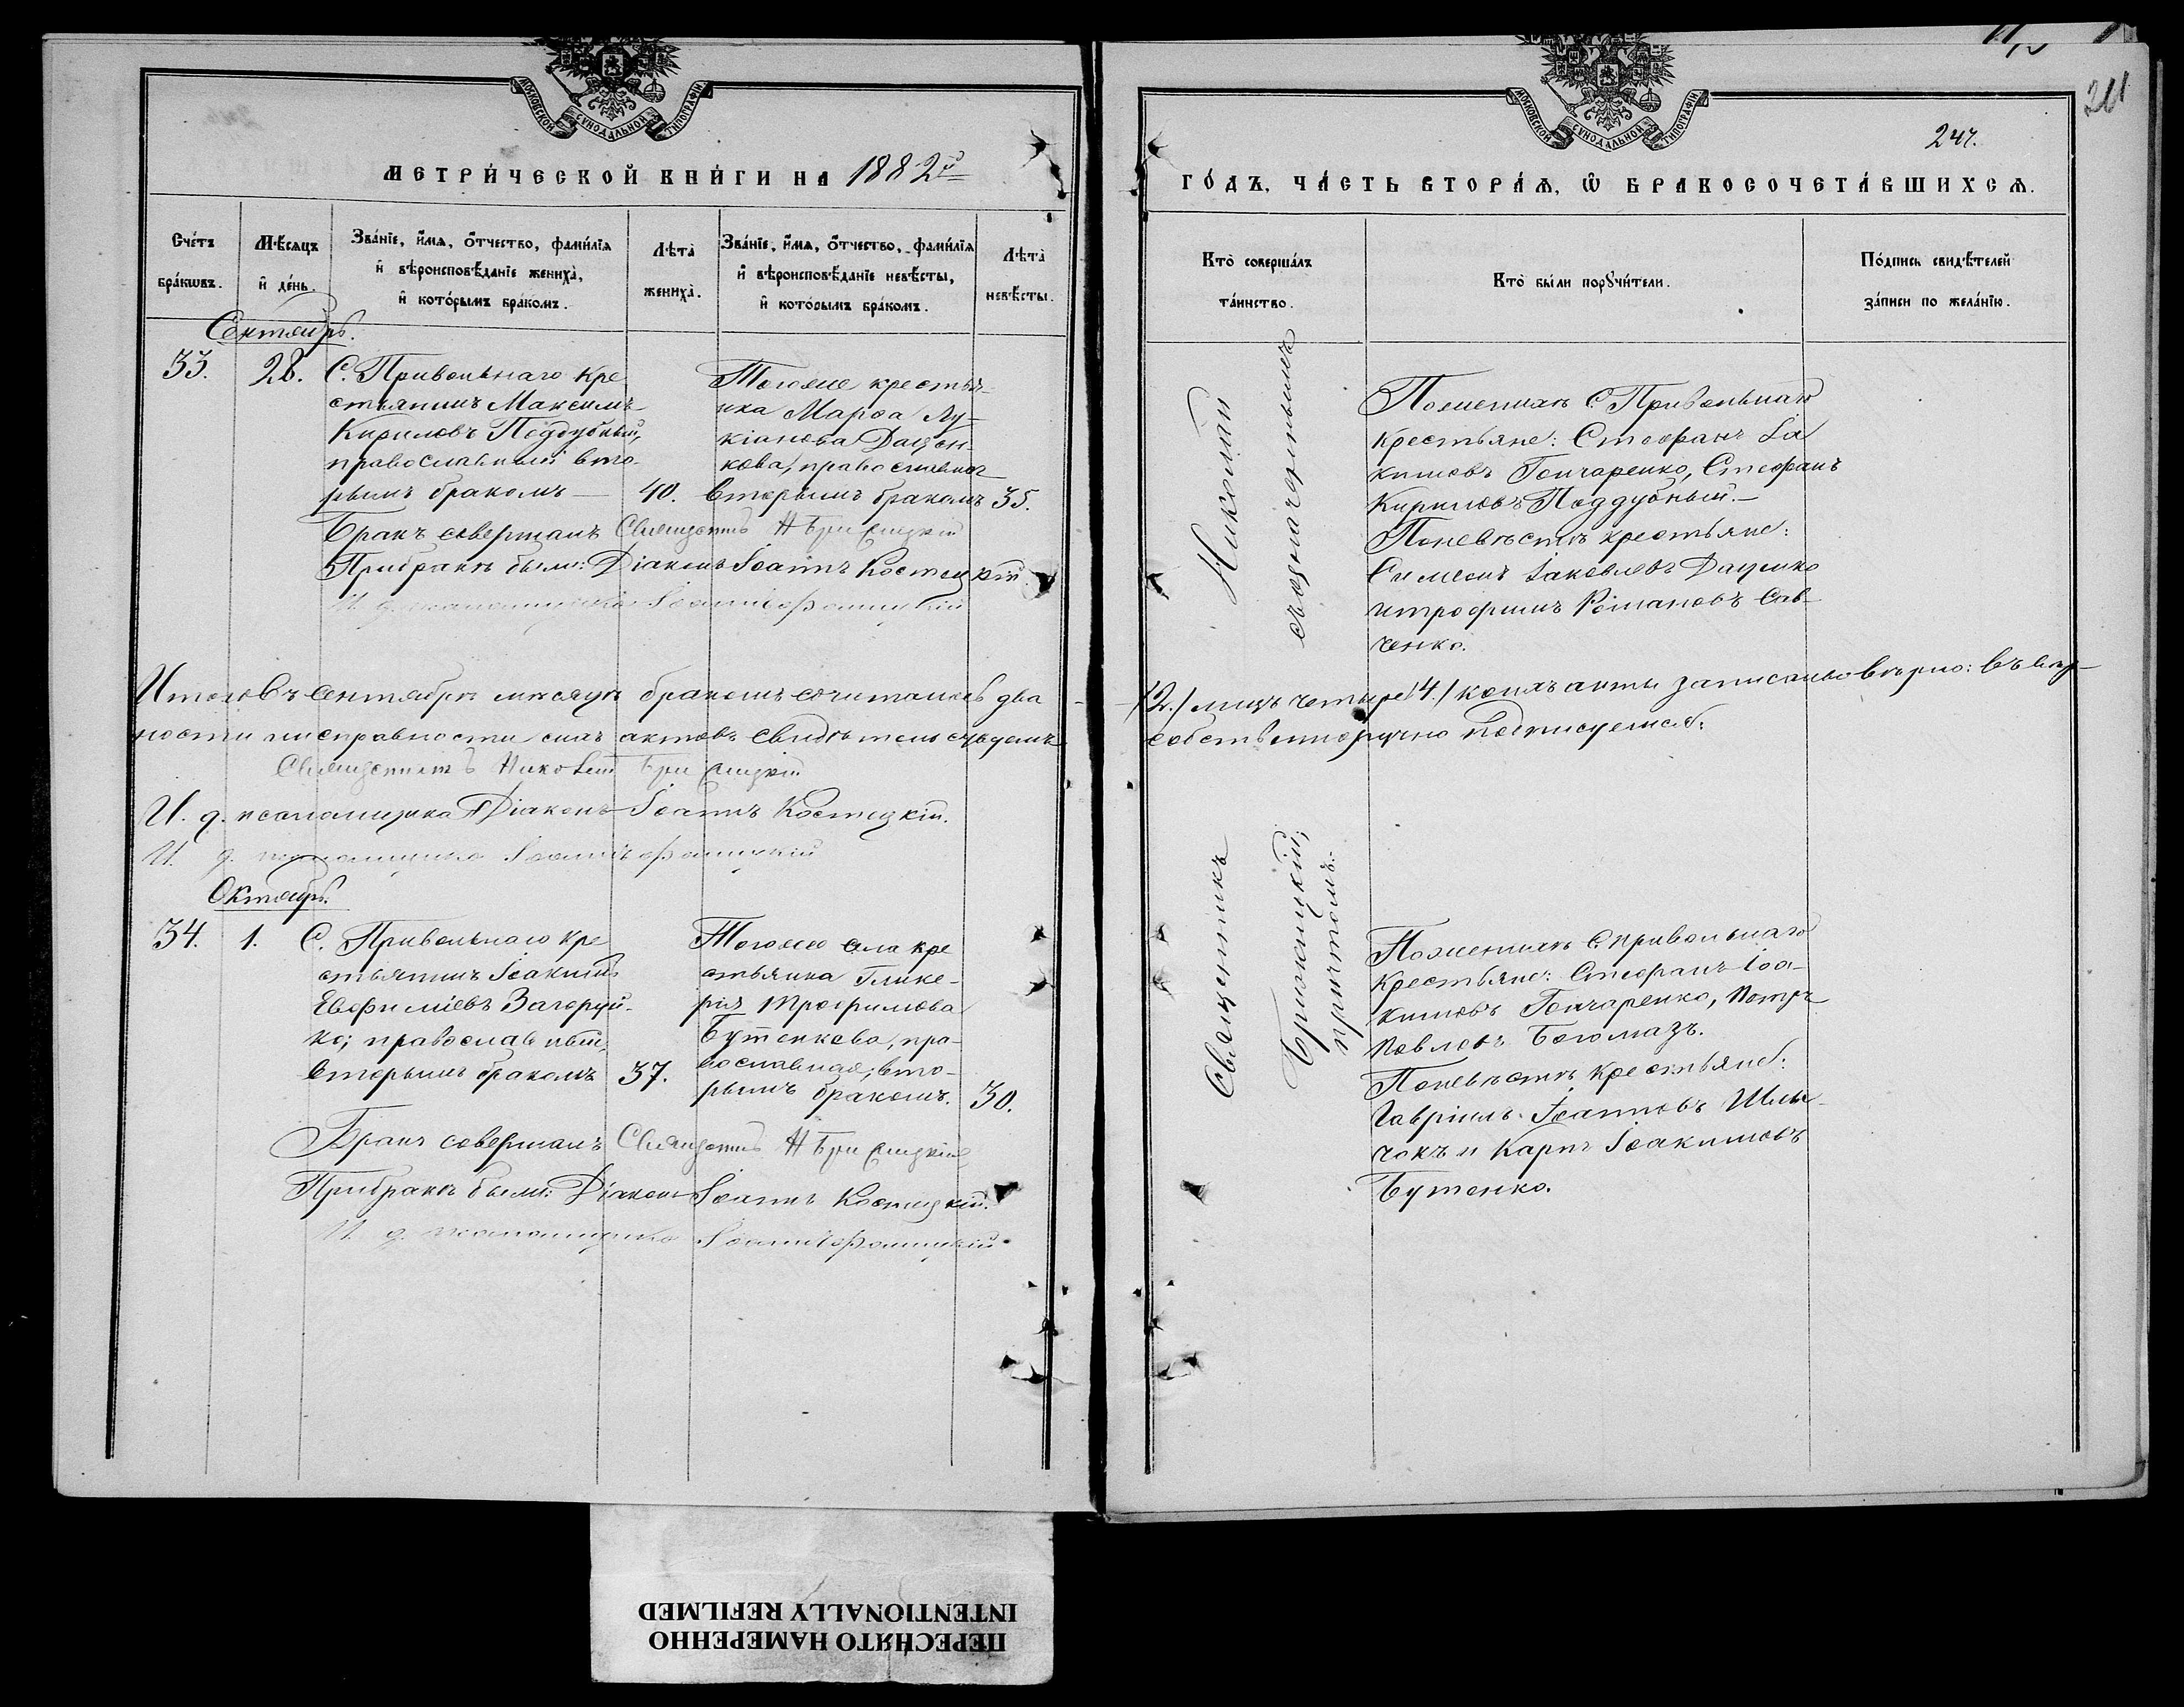 МОСКОВСКОЙ СѴНОДАЛЬНОЙ ТИПОГРАФІИ
МЕТРИ́ЧЕСКОЙ КНИ́ГИ НА 1882й
Сче́тъ бра́кѡвъ.
Мѣ́сяцъ и҆ де́нь.
Зва́нїе, и҆́мѧ, ѻ҆́тчество, фами́лїѧ
и҆ вѣроисповѣ́данїе жениха̀,
и҆ кото́рымъ бра́комъ.
Лѣта̀ жениха̀.
Зва́нїе, и҆́мѧ, ѻ҆́тчество, фами́лїѧ
и҆ вѣроисповѣ́данїе невѣ́сты,
и҆ кото́рымъ бра́комъ.
Лѣта̀ невѣ́сты.
Сентябрь.
33.
28.
С. Привольнаго кре
стьянинъ Максимъ
Кириловъ Поддубный,
православный вто-
рымъ бракомъ —
40.
Тогоже крестья-
нка Марѳа Лу-
кіанова Дацен-
кова, православная
вторымъ бракомъ
35.
Бракъ совершалъ Священникъ Н Брижицкій
При бракѣ были: Діаконъ Іоаннъ Костецкій.
И. д. псаломщика Іоаннъ
Итого въ Сентябрѣ мѣсяцѣ бракомъ сочиталось два
ности и исправности сихъ актовъ свидѣтельствуемъ
Священникъ Николай Брижицкій
И. д. псаломщика Діаконъ Іоаннъ Костецкій.
И. д. псаломщика Іоаннъ
Октябрь.
34.
1.
С. Привольнаго кре
стьянинъ Іоакимъ
Евфиміевъ Загоруй-
ко; православный,
вторымъ бракомъ
37.
Тогоже села кре
стьянка Глике-
рія Трофимова
Бутенкова, пра-
вославная; вто-
рымъ бракомъ.
30.
Бракъ совершалъ Священникъ Н Брижицкій
При бракѣ были: Діаконъ Іоаннъ Костецкій.
И. д. псаломщика Іоаннъ
МОСКОВСКОЙ СѴНОДАЛЬНОЙ ТИПОГРАФІИ
211
247.
ГО́ДЪ, ЧА́СТЬ ВТОРА́Ѧ, Ѽ БРАКОСОЧЕТА́ВШИХСѦ.
Кто̀ соверша́лъ
та́инство.
Кто̀ бы́ли порꙋчи́тели.
По́дпись свидѣ́телей
за́писи по жела́нїю.
Николай
съ означеннымъ
По женихѣ С. Привольнаго
крестьяне: Стефанъ Іа
кимовъ Гончаренко, Стефанъ
Кириловъ Поддубный.—
По невѣстѣ крестьяне:
Симеонъ Іаковлевъ Даценко
и трофимъ Романовъ Сав-
ченко.
(2.) лицъ четыре (4.) коихъ акты записаны вѣрно: въ вѣр-
собственноручно подписуемсь:
Священникъ
Брижицкій;
причтомъ.
По женихѣ С. Привольнаго
крестьяне: Стефанъ Іоа-
кимовъ Гончаренко, Петръ
Павловъ Богомазъ.
По невѣстѣ крестьяне:
Гавріилъ Іоанновъ
и Карпъ Іоакимовъ
Бутенко.
ПЕРЕСНЯТО НАМЕРЕННО
INTENTIONALLY REFILMED